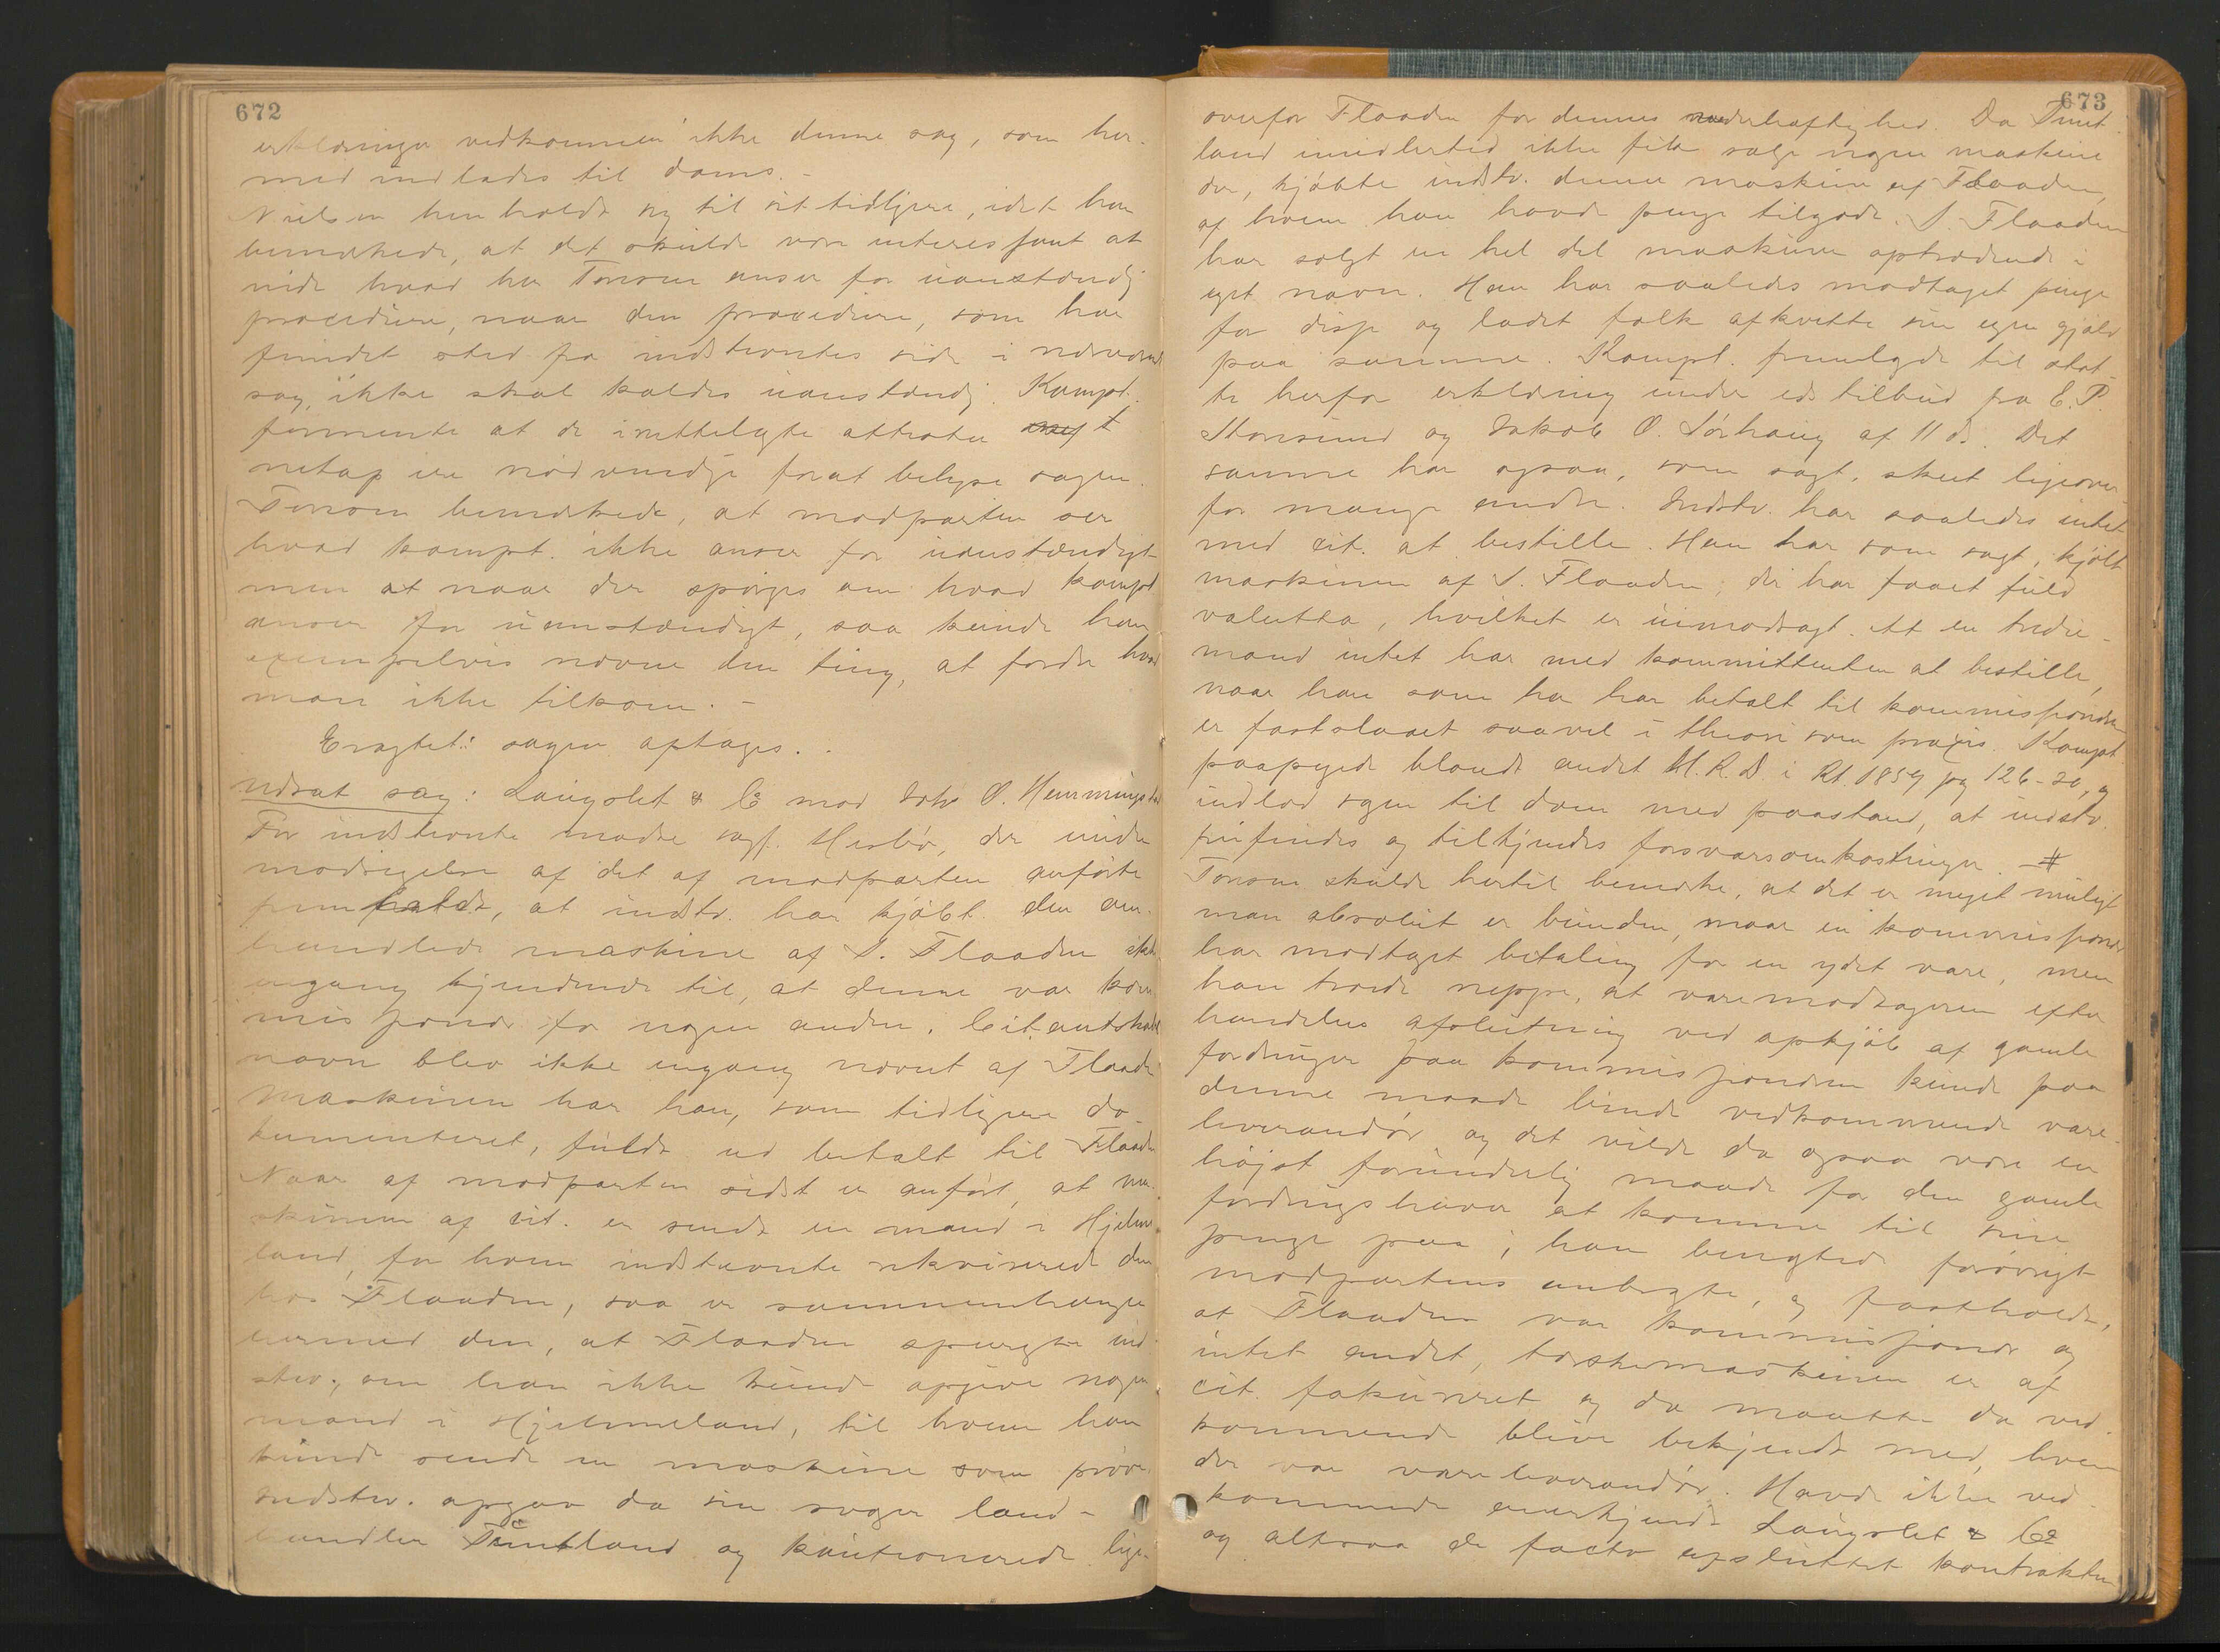 672
erklæringer vedkommer ikke denne sag, som her-
med indlades til doms. -
Nielsen henholdt sig til sit tidligere, idet han
bemærkede, at det skulde være interessant at
vide hvad hr Tonsom anser for uanstændig
procedure, naar den procedure, som har
fundet sted fra indstevntes side i nærværende
sag, ikke skal kaldes uanstændig. Kompt.
formente at de irettelagte attester
netop ere nødvendige forat belyse sagen.
Tonsom bemærkede, at modparten ser
hvad kompt. ikke anser for uanstændigt
men at naar der spørges om hvad kompt
anser for uanstændigt, saa kunde han
exempelvis nævne den ting, at fordre hvad
man ikke tilkom. -
Eragtet: sagen optages. -
Udsat sag: Laugslet & Co mod O. Hemmingstad
For indstevnte mødte sagf. Hesbø, der under
modsigelse af det af modparten anførte
fremholdt, at indstv. har kjøbt den om-
handlede maskine af S. Flaaden ikke
engang kjendende til, at denne var kom-
missionær for nogen anden. Citantskabets
navn blev ikke engang nævnt af Flaaden
Maskinen har han, som tidligere do-
kumenteret, fuldt ud betalt til Flaaden
Naar af modparten sidst er anført, at ma-
skinen af cit. er sendt en mand i Hjelme-
land, for hvem indstevnte rekvirerede den
hos Flaaden, saa er sammenhængen
hermed den, at Flaaden spurgte ind-
stev., om han ikke kunde opgive nogen
mand i Hjelmeland, til hvem han
kunde sende en maskine som prøve.
Indstev. opgav da sin svoger land-
handler Tuntland og kautionerede lige-
673
overfor Flaaden for dennes vederhæftighed. Da Tunt-
land imidlertid ikke fik solgt nogen maskine
der, kjøbte indstv. denne maskine af Flaaden,
af hvem han havde penge tilgode. S. Flaaden
har solgt en hel del maskiner optrædende i
eget navn. Han har saaledes modtaget penge
for disse og ladet folk afkvitte sin egen gjæld
paa samme. Kompt. fremlagde til støt-
te herfor erklæring under eds tilbud fra E. P.
og Jakob O. Sørhaug af 11 ds. Det
samme har ogsaa, som sagt, skeet ligeover-
for mange andre. Indstv. har saaledes intet
med cit. at bestille. Han har som sagt, kjøbt
maskinen af S. Flaaden, der har faaet fuld
valutta, hvilket er uimodsagt. At en tredie-
mand intet har med kommittenten at bestille,
naar han som her har betalt til kommissionæren
er fastslaaet saavel i theori som praxis. Kompt
paapegede blandt andet H.R.D. i Rt. 1859 pg 126-20, og
indlod sagen til dom med paastand, at indstv.
frifindes og tilkjendes forsvarsomkostninger. #
Tonsom skulde hertil bemærke, at det er meget muligt
man absolut er bunden, naar en kommissionær
har modtaget betaling for en ydet vare, men
han troede neppe, at varemodtageren efter
handelens afslutning ved opkjøb af gamle
fordringer paa kommissionæren kunde paa
denne maade binde vedkommende vare-
leverandør og det vilde da ogsaa være en
højst forunderlig maade for den gamle
fordringshaver at komme til sine
penge paa; han benegtede forøvrigt
modpartens anbragte, og fastholdt,
at Flaaden var kommissionær og
intet andet, tærskemaskinen er af
cit. faktureret og da maatte da ved-
kommende blive bekjendt med, hvem
der var vareleverandør. Havde ikke ved-
kommende anerkjendt Laugslet & Co
og altsaa de facto afsluttet kontrakten